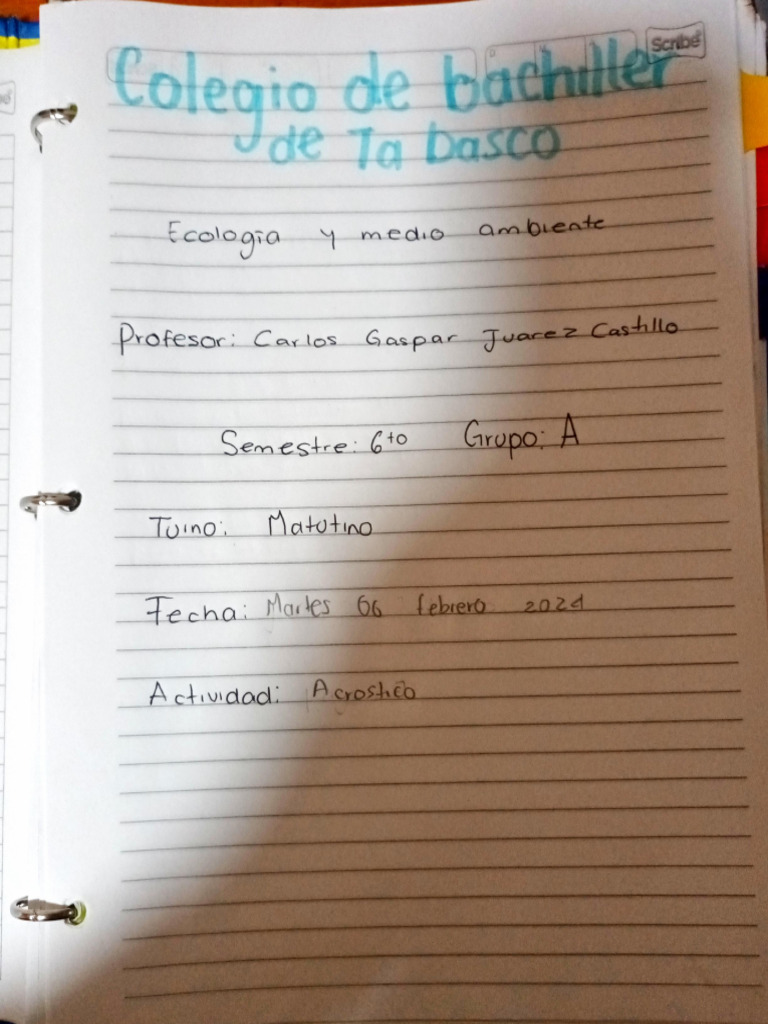 Scribe
Colegio de bachiller
de Tabasco
Ecología y medio ambiente
Profesor: Carlos Gaspar Juarez Castillo
Semestre: 6to Grupo: A
Turno: Matutino
Fecha: Martes 06 febrero 2024
Actividad: Acrostico